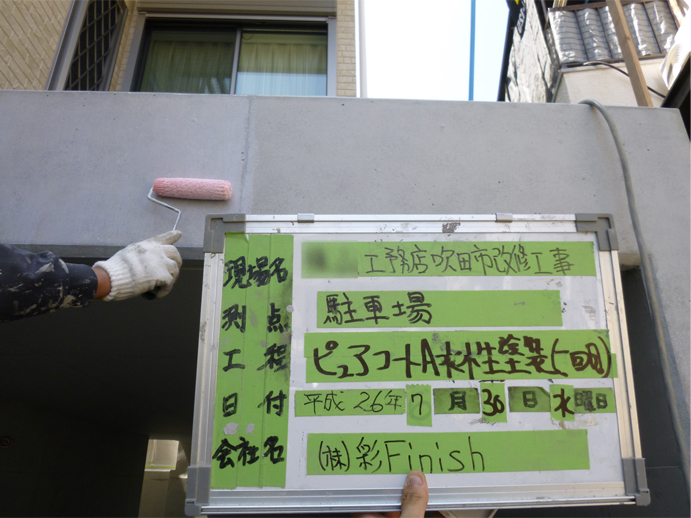 現場名 工務店吹田市改修工事
測点 駐車場
工程 ピュアコートA水性塗装(1回目)
日付 平成26年7月30日水曜日
会社名 (株)彩Finish